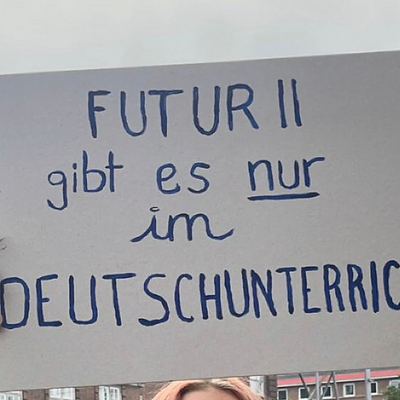 FUTUR II
gibt es nur
im
DEUTSCHUNTERRIC